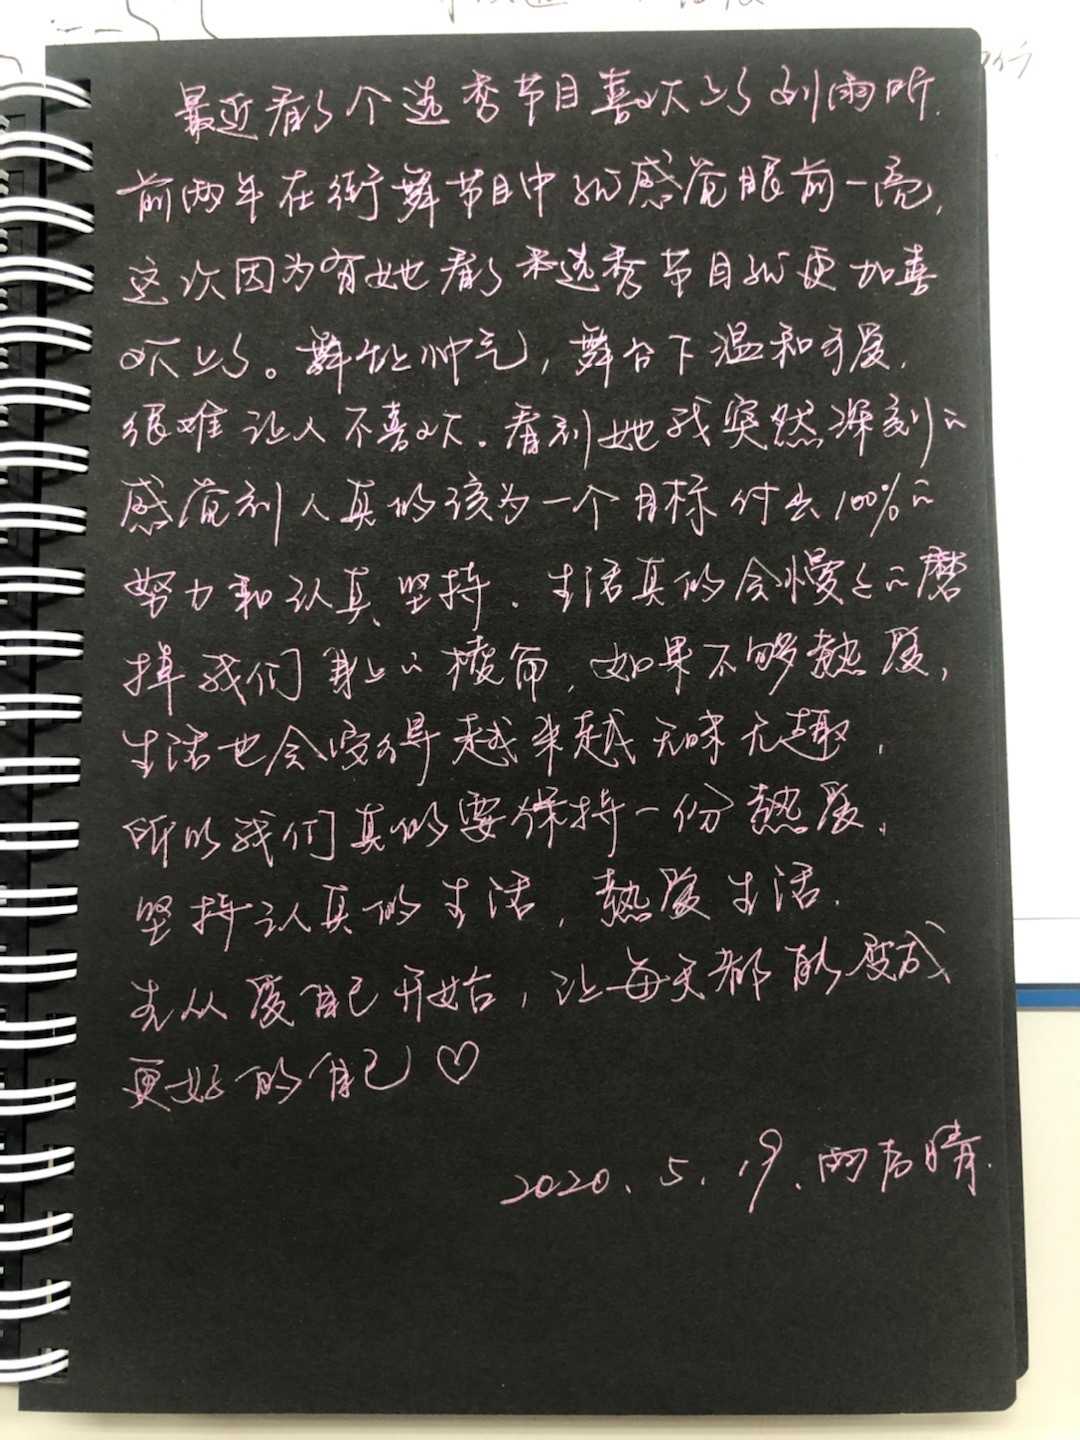 最近看了个选秀节目喜欢上了刘雨昕.
前两年在街舞节目中就感觉眼前一亮,
这次因为有她看了本选秀节目就更加喜
欢上了。舞台上帅气,舞台下温和可爱,
很难让人不喜欢。看到她我突然深刻的
感觉到人真的该为一个目标付出100%的
努力和认真坚持。生活真的会慢々的磨
掉我们身上的棱角,如果不够热爱,
生活也会变得越来越无味无趣,
所以我们真的要保持一份热爱,
坚持认真的生活,热爱生活.
先从爱自己开始,让每天都能变成
更好的自己♡
2020.5.19.雨后晴.